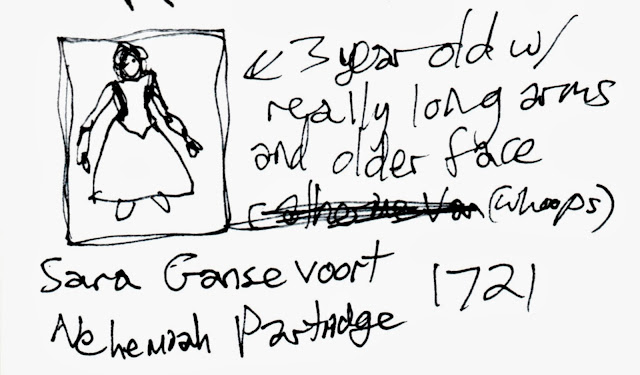 3 year old w/
really long arms
and older face
Catherine Van (whoops)
Sara Gansevoort 1721
Nehemiah Partridge